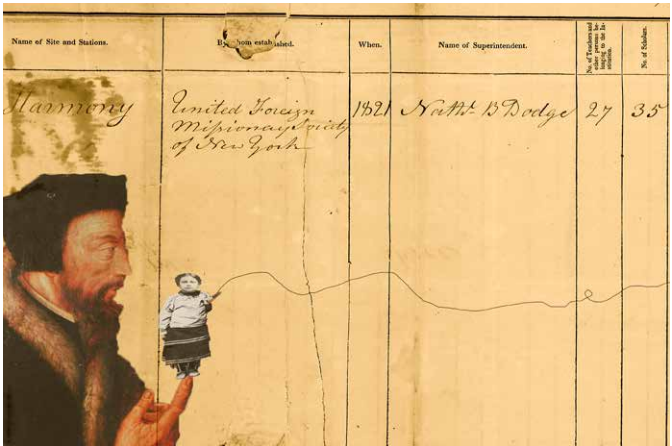 Name of Site and Stations.
By whom established.
When.
Name of Superintendent.
No. of Teachers and
other persons be-
longing to the In-
stitution.
No. of Scholars.
Harmony
United Foreign
Missionary Society
of New York
1821
Nathl. B Dodge
27
35